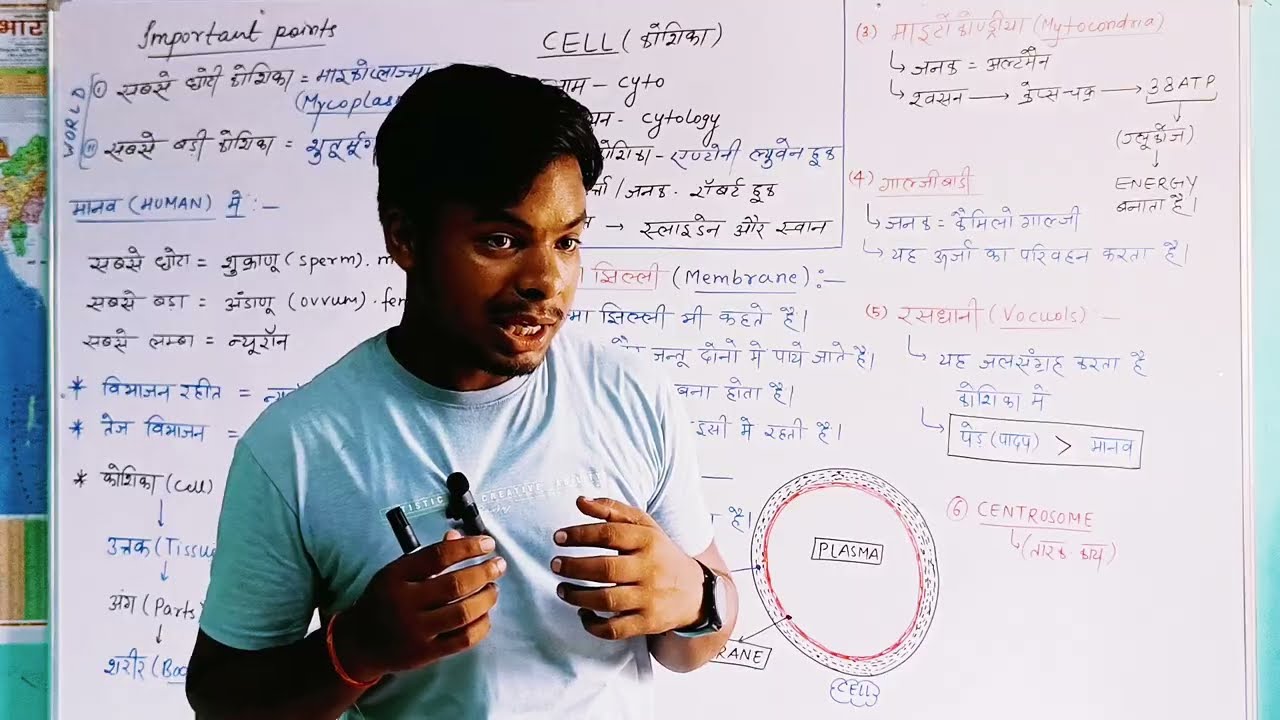 भार
Important points
WORLD
(i) सबसे छोटी कोशिका = माइकोप्लाज्मा
(Mycoplas
(ii) सबसे बड़ी कोशिका = शुतुर्मुर्ग
मानव (HUMAN) में :—
सबसे छोटा = शुक्राणू (Sperm).
सबसे बड़ा = अंडाणू (ovvum). fe
सबसे लम्बा = न्यूरॉन
* विभाजन रहीत =
* तेज विभाजन =
* कोशिका (Cell)
↓
उत्तक (Tissu
↓
अंग (Parts
↓
शरीर (Bo
CELL (कोशिका)
नाम — cyto
cytology
कोशिका — एण्टोनी ल्युवेन हूक
जनक - रॉबर्ट हूक
→ स्लाइडेन और स्वान
झिल्ली (Membrane) :—
झिल्ली भी कहते है।
जन्तू दोनो मे पाये जाते है।
बना होता है।
इसी मे रहती है।
है।
PLASMA
RANE
CELL
(3) माइटोकोण्ड्रीया (Mytocondria)
↳ जनक = अल्टमैन
↳ श्वसन → क्रेप्स-चक्र → 38ATP
↓
(ग्लूकोज)
↓
ENERGY
बनाता है।
(4) गाल्जीबाडी
↳ जनक = कैमिलो गाल्जी
↳ यह ऊर्जा का परिवहन करता है।
(5) रसधानी (Vocuols) —
↳ यह जलसंग्रह करता है
कोशिका मे
↳ पेड (पादप) > मानव
(6) CENTROSOME
↳ (तारक काय)